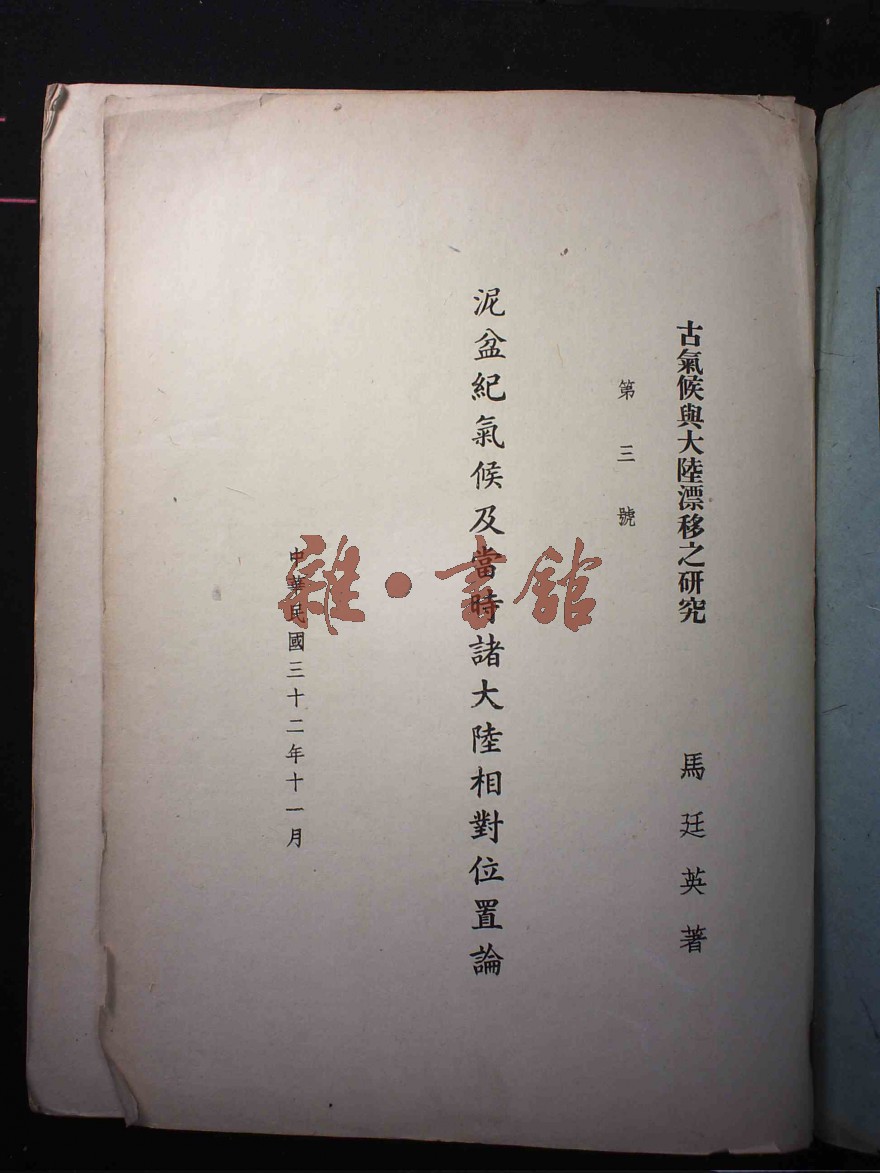 古氣候與大陸漂移之研究
馬廷英著
第三號
泥盆紀氣候及當時諸大陸相對位置論
中華民國三十二年十一月
雜·書館